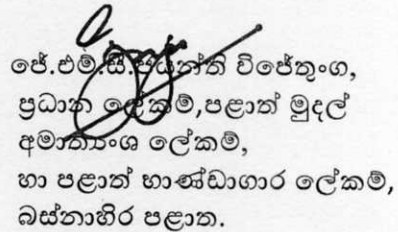 ජේ.එම්.සී.ජයන්ති විජේතුංග,
ප්‍රධාන ලේකම්,පළාත් මුදල්
අමාත්‍යංශ ලේකම්,
හා පළාත් භාණ්ඩාගාර ලේකම්,
බස්නාහිර පළාත.